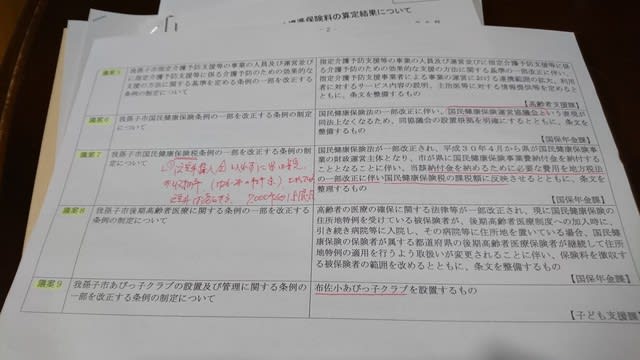 標準保険料の算定結果について
- 2 -
議案5
我孫子市指定介護予防支援等の事業の人員及び運営並び
に指定介護予防支援等に係る介護予防のための効果的な
支援の方法に関する基準を定める条例の一部を改正する
条例の制定について
指定介護予防支援等の事業の人員及び運営並びに指定介護予防支援等に係
る介護予防のための効果的な支援の方法に関する基準の一部改正に伴い、
指定介護予防支援事業者による事業の運営における連携範囲の拡大、利用
者に対するサービス内容の説明、主治医等に対する情報提供等を定めると
ともに、条文を整備するもの
【高齢者支援課】
議案6
我孫子市国民健康保険条例の一部を改正する条例の制定
について
国民健康保険法の一部改正に伴い、国民健康保険運営協議会という表現が
同法上なくなるため、同協議会の設置根拠を明確にするとともに、条文を
整備するもの
【国保年金課】
議案7
我孫子市国民健康保険税条例の一部を改正する条例の制
定について
国民健康保険法等の一部が改正され、平成30年4月から県が国民健康保険事
業の財政運営主体となり、市が県に国民健康保険事業費納付金を納付する
こととなることに伴い、当該納付金を納めるために必要な費用を地方税法
の一部改正に伴い国民健康保険税の課税額に反映させるとともに、条文を
整理するもの
【国保年金課】
議案8
我孫子市後期高齢者医療に関する条例の一部を改正する
条例の制定について
高齢者の医療の確保に関する法律等が一部改正され、現に国民健康保険の
住所地特例を受けている被保険者が、後期高齢者医療制度への加入時に、
引き続き病院等に入院し、その病院等に住所地を置いている場合、国民健
康保険の保険者が属する都道府県の後期高齢者医療保険者が継続して住所
地特例の適用を行うよう取扱いが変更されることに伴い、保険料を徴収す
る被保険者の範囲を改めるとともに、条文を整備するもの
【国保年金課】
議案9
我孫子市あびっ子クラブの設置及び管理に関する条例の
一部を改正する条例の制定について
布佐小あびっ子クラブを設置するもの
【子ども支援課】